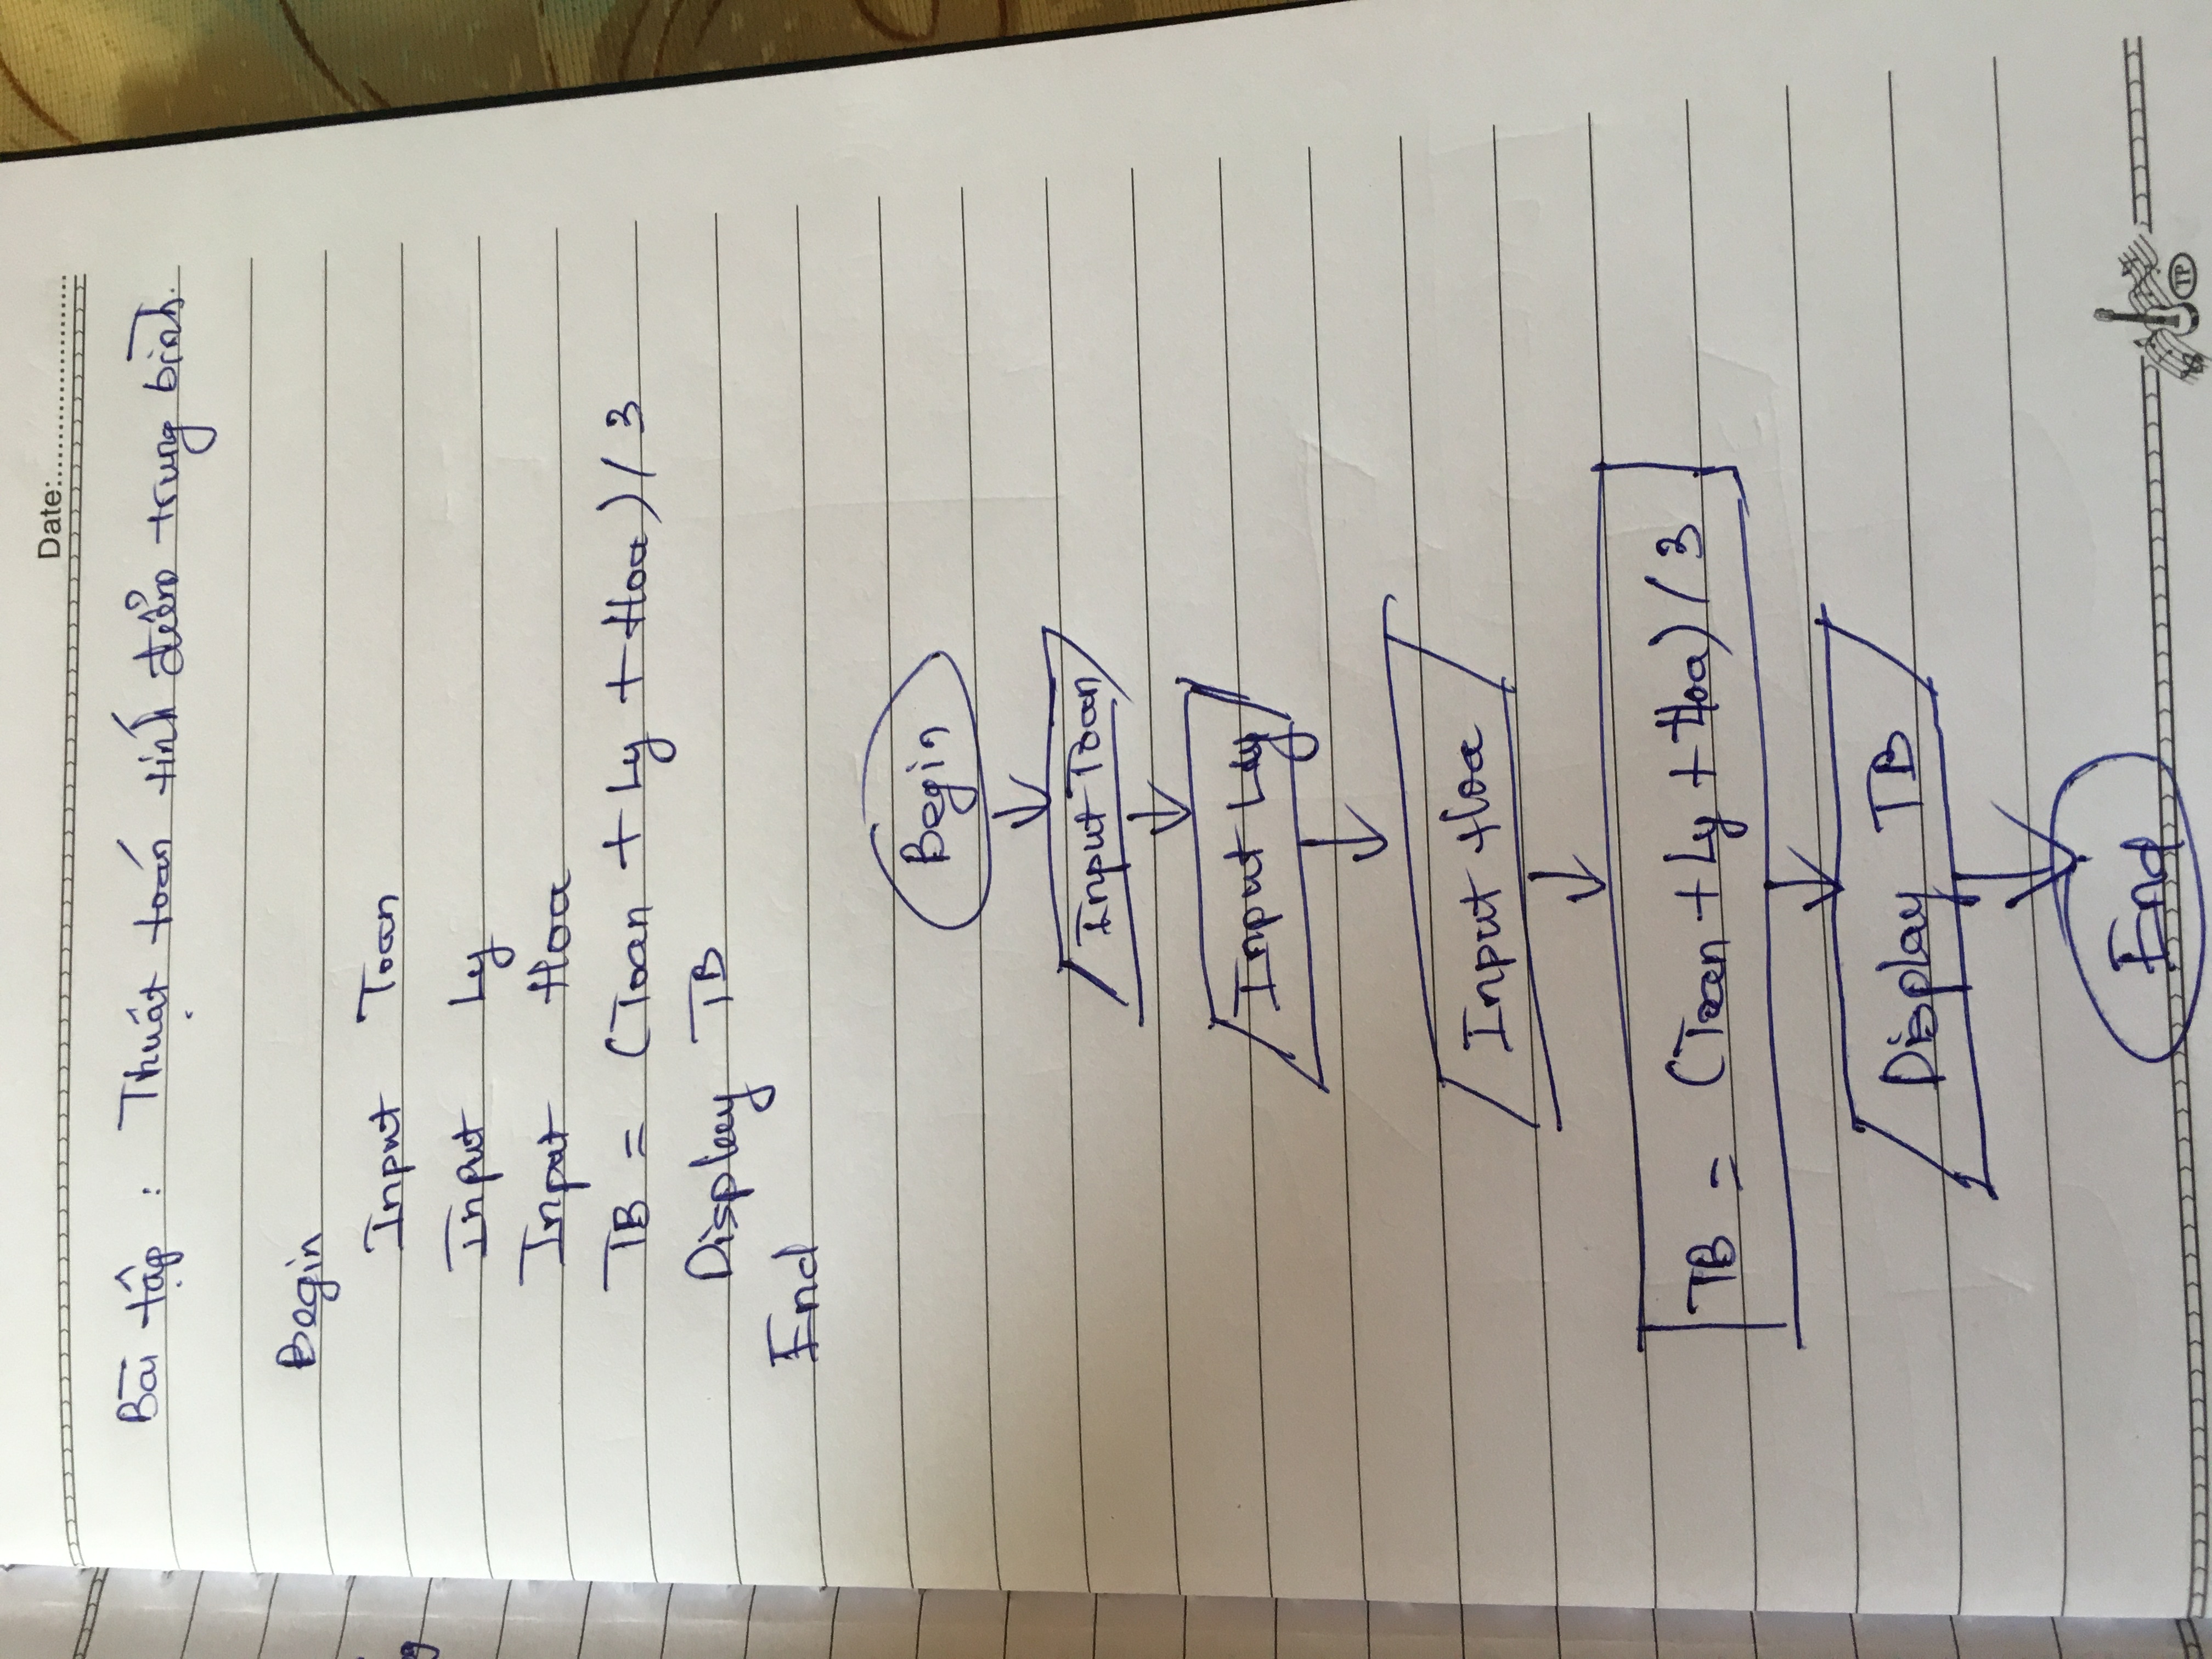 Date:
Bài tập : Thuật toán tính điểm trung bình.
Begin
Input Toan
Input Ly
Input Hoa
TB = (Toan + Ly + Hoa) / 3
Display TB
End
Begin
Input Toan
Input Ly
Input Hoa
TB = (Toan + Ly + Hoa) / 3
Display TB
End
TP